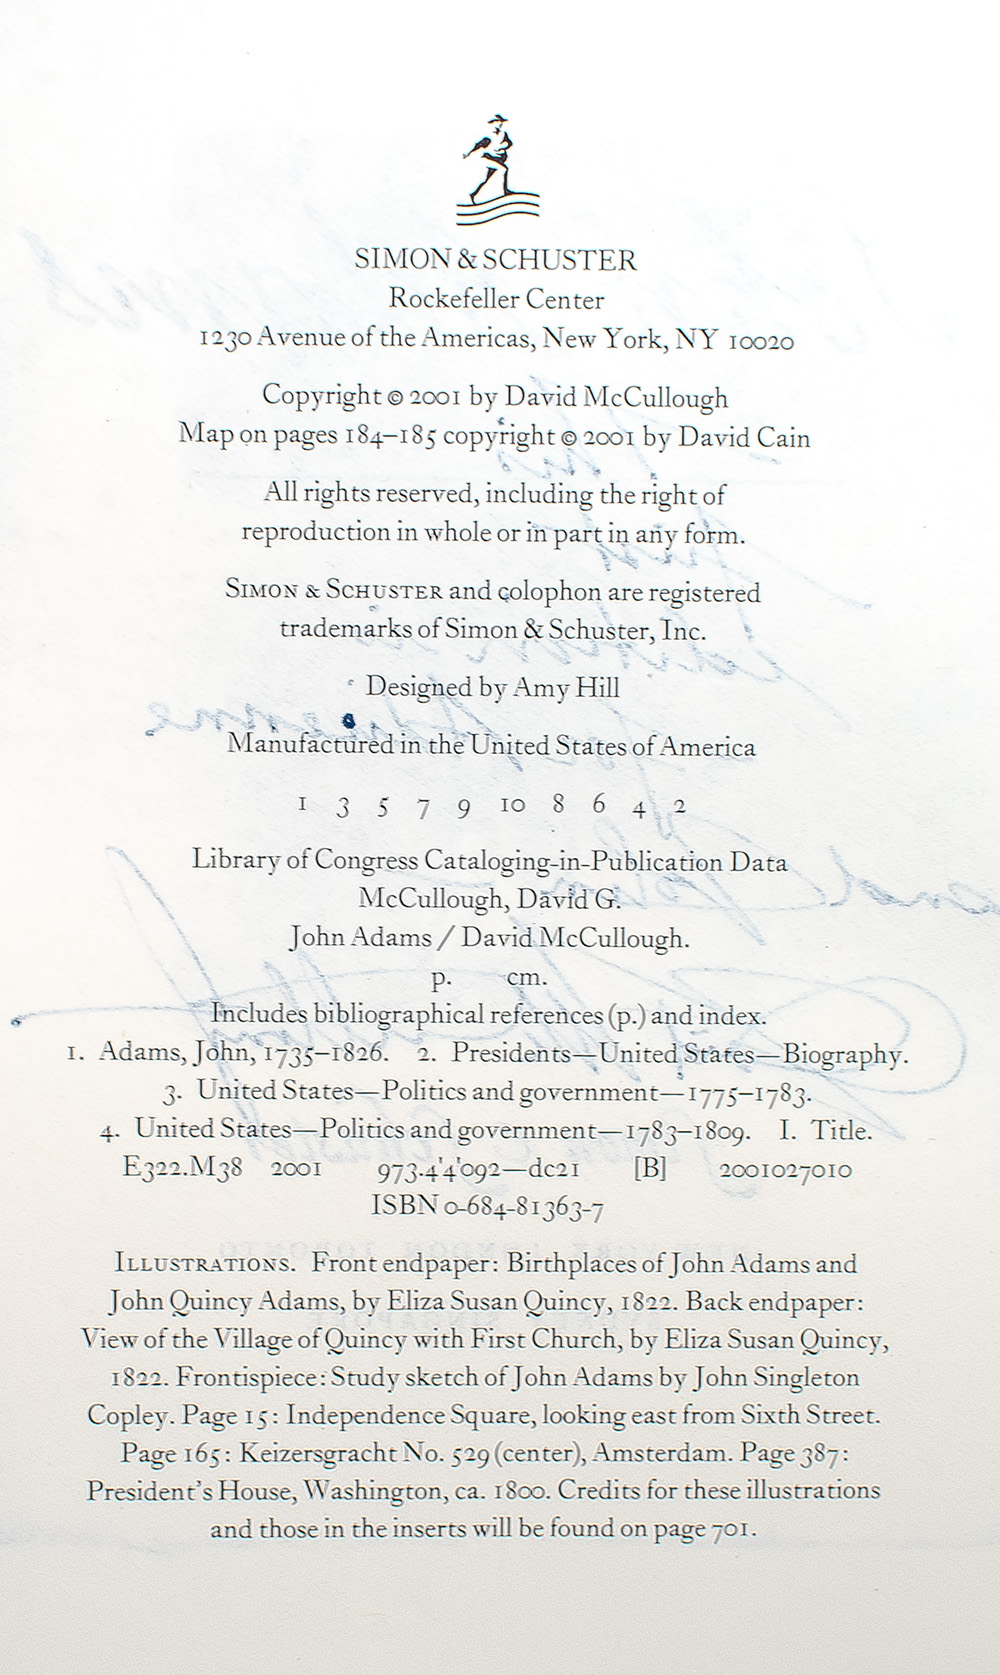 SIMON & SCHUSTER
Rockefeller Center
1230 Avenue of the Americas, New York, NY 10020
Copyright © 2001 by David McCullough
Map on pages 184–185 copyright © 2001 by David Cain
All rights reserved, including the right of
reproduction in whole or in part in any form.
SIMON & SCHUSTER and colophon are registered
trademarks of Simon & Schuster, Inc.
Designed by Amy Hill
Manufactured in the United States of America
1 3 5 7 9 10 8 6 4 2
Library of Congress Cataloging-in-Publication Data
McCullough, David G.
John Adams / David McCullough.
p. cm.
Includes bibliographical references (p.) and index.
1. Adams, John, 1735–1826. 2. Presidents—United States—Biography.
3. United States—Politics and government—1775–1783.
4. United States—Politics and government—1783–1809. I. Title.
E322.M38 2001 973.4'4'092—dc21 [B] 2001027010
ISBN 0-684-81363-7
ILLUSTRATIONS. Front endpaper: Birthplaces of John Adams and
John Quincy Adams, by Eliza Susan Quincy, 1822. Back endpaper:
View of the Village of Quincy with First Church, by Eliza Susan Quincy,
1822. Frontispiece: Study sketch of John Adams by John Singleton
Copley. Page 15: Independence Square, looking east from Sixth Street.
Page 165: Keizersgracht No. 529 (center), Amsterdam. Page 387:
President's House, Washington, ca. 1800. Credits for these illustrations
and those in the inserts will be found on page 701.